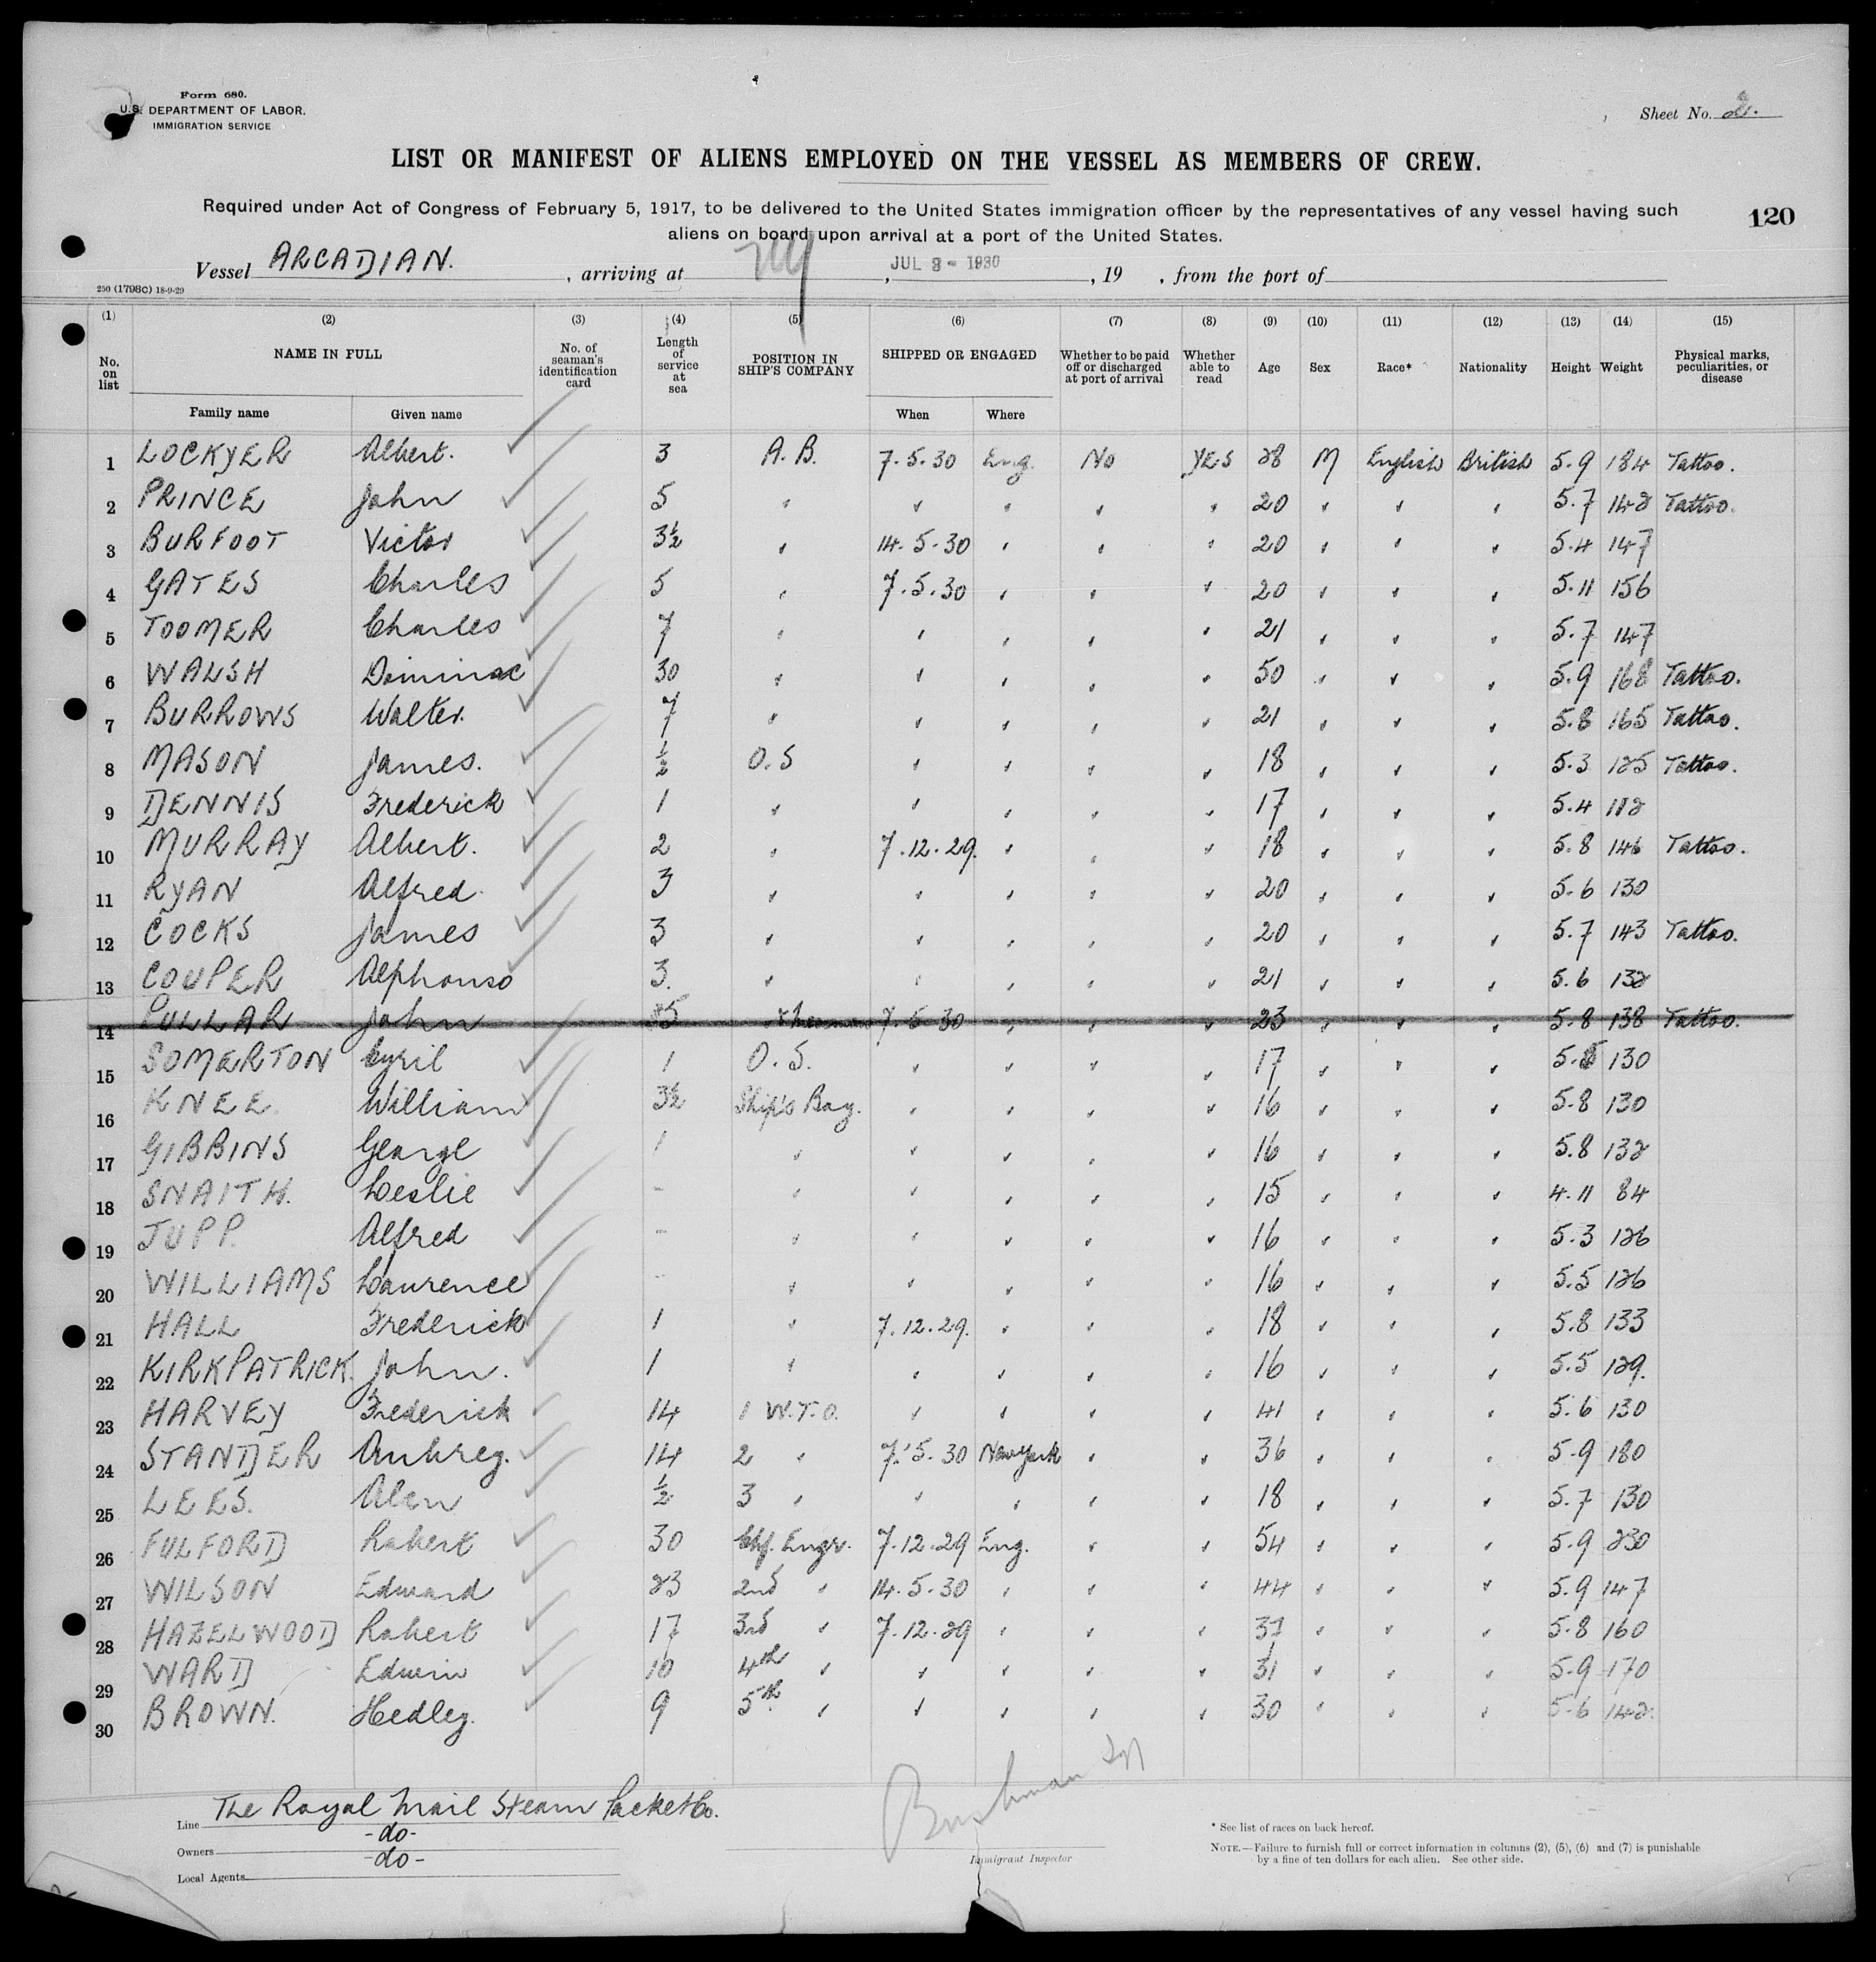 Form 680.
U.S. DEPARTMENT OF LABOR.
IMMIGRATION SERVICE
Sheet No. 2.
LIST OR MANIFEST OF ALIENS EMPLOYED ON THE VESSEL AS MEMBERS OF CREW.
Required under Act of Congress of February 5, 1917, to be delivered to the United States immigration officer by the representatives of any vessel having such
aliens on board upon arrival at a port of the United States.
120
Vessel ARCADIAN. , arriving at NY , JUL 8 - 1930 , 19 , from the port of
250 (1798C) 18-9-29
(1) (2) (3) (4) (5) (6) (7) (8) (9) (10) (11) (12) (13) (14) (15)
No. on list NAME IN FULL Family name Given name No. of seaman's identification card Length of service at sea POSITION IN SHIP'S COMPANY SHIPPED OR ENGAGED When Where Whether to be paid off or discharged at port of arrival Whether able to read Age Sex Race* Nationality Height Weight Physical marks, peculiarities, or disease
1 LOCKYER Albert. 3 A.B. 7.5.30 Eng. No YES 28 M English British 5.9 184 Tattoo.
2 PRINCE John 5 " " " " " 20 " " " 5.7 142 Tattoo.
3 BURFOOT Victor 3½ " 14.5.30 " " " 20 " " " 5.4 147
4 GATES Charles 5 " 7.5.30 " " " 20 " " " 5.11 156
5 TOOMER Charles 7 " " " " " 21 " " " 5.7 147
6 WALSH Dominac 30 " " " " " 50 " " " 5.9 168 Tattoo.
7 BURROWS Walter. 7 " " " " " 21 " " " 5.8 165 Tattoo.
8 MASON James. ½ O.S " " " " 18 " " " 5.3 125 Tattoo.
9 DENNIS Frederick 1 " " " " " 17 " " " 5.4 112
10 MURRAY Albert. 2 " 7.12.29. " " " 18 " " " 5.8 146 Tattoo.
11 RYAN Alfred. 3 " " " " " 20 " " " 5.6 130
12 COCKS James 3 " " " " " 20 " " " 5.7 143 Tattoo.
13 COUPER Alphonso 3. " " " " " 21 " " " 5.6 132
14 PULLAR John 7.5.30 " " " 23 " " " 5.8 138 Tattoo.
15 SOMERTON Cyril 1 O.S. " " " " 17 " " " 5.8 130
16 KNEE William 3½ Ship's Boy. " " " " 16 " " " 5.8 130
17 GIBBINS George 1 " " " " " 16 " " " 5.8 132
18 SNAITH. Leslie - " " " " " 15 " " " 4.11 84
19 JUPP. Alfred - " " " " " 16 " " " 5.3 126
20 WILLIAMS Laurence - " " " " " 16 " " " 5.5 126
21 HALL Frederick 1 " 7.12.29. " " " 18 " " " 5.8 133
22 KIRKPATRICK. John. 1 " " " " " 16 " " " 5.5 129.
23 HARVEY Frederick 14 1 W.T.O. " " " " 41 " " " 5.6 130
24 STANDER Aubrey. 14 2 " 7.5.30 New York " " 36 " " " 5.9 180
25 LEES. Alan ½ 3 " " " " " 18 " " " 5.7 130
26 FULFORD Robert 30 Chf. Engr. 7.12.29 Eng. " " 54 " " " 5.9 230
27 WILSON Edward 23 2nd " 14.5.30 " " " 44 " " " 5.9 147
28 HAZELWOOD Robert 17 3rd " 7.12.29 " " " " " " 5.8 160
29 WARD Edwin 10 4th " " " " " 31 " " " 5.9 170
30 BROWN. Hedley. 9 5th " " " " " 30 " " " 5.6 142.
Line The Royal Mail Steam Packet Co.
Owners -do-
Local Agents -do-
Immigrant Inspector
* See list of races on back hereof.
NOTE.—Failure to furnish full or correct information in columns (2), (5), (6) and (7) is punishable
by a fine of ten dollars for each alien. See other side.